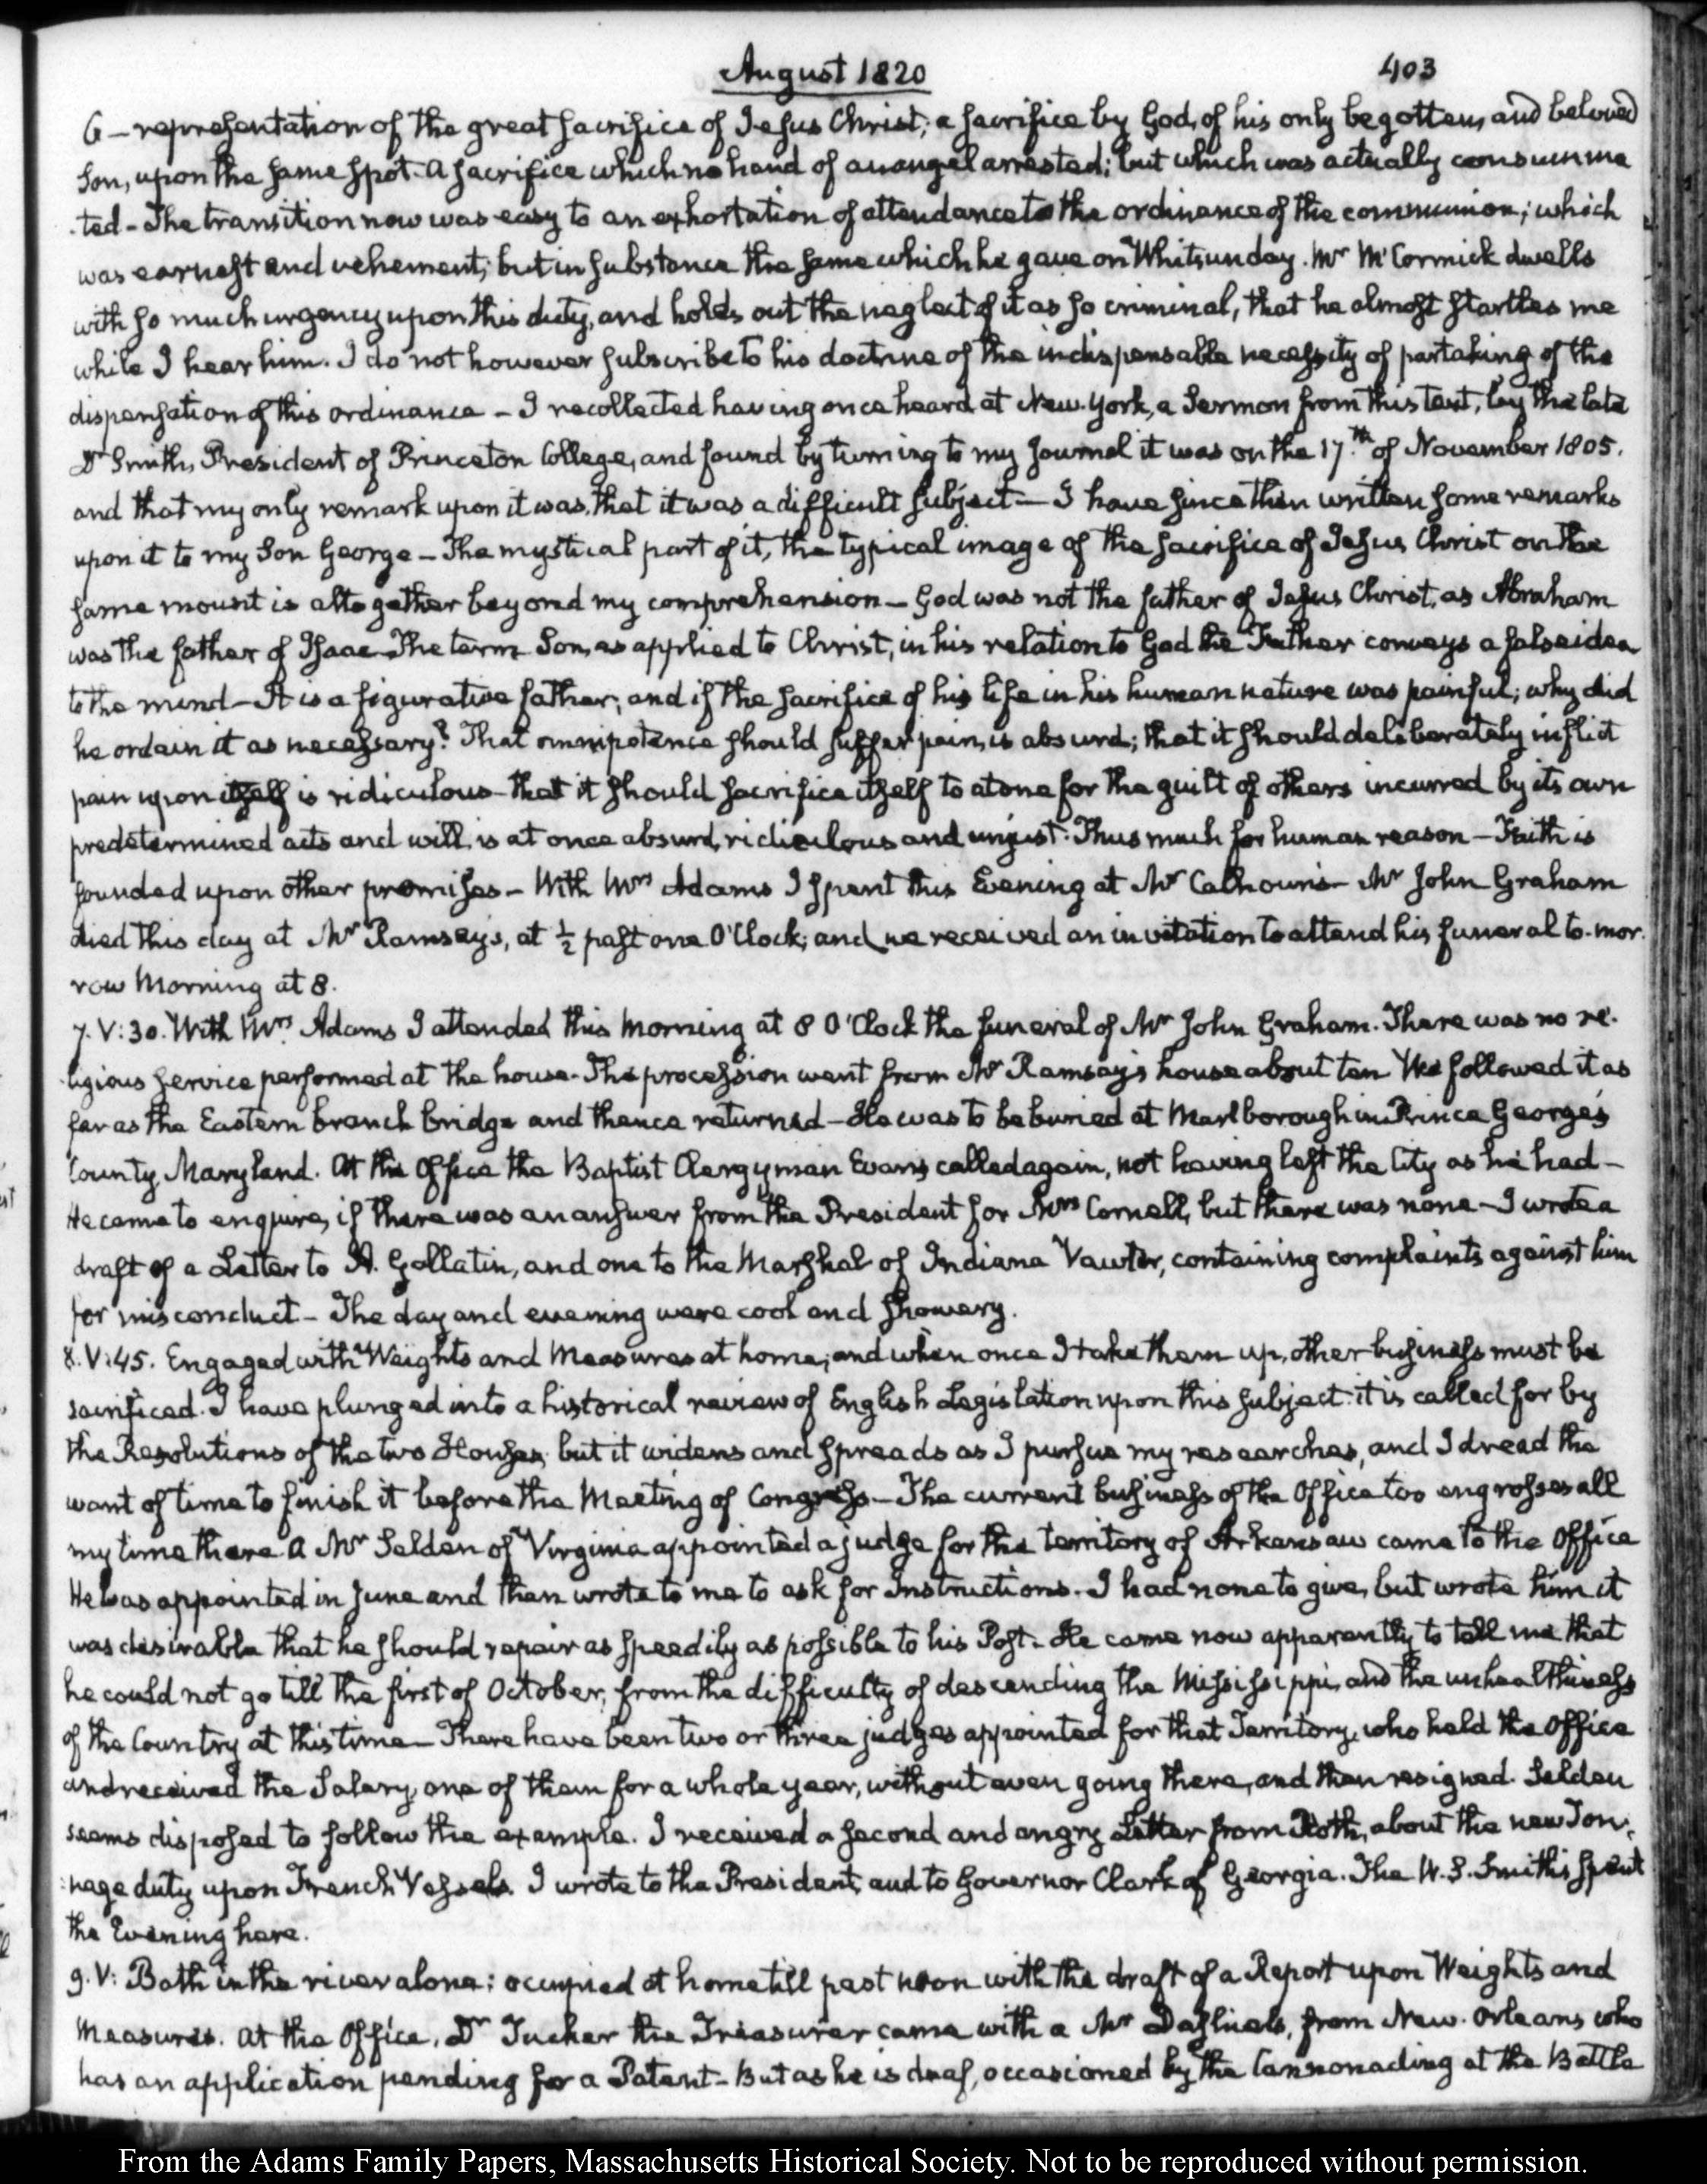 August 1820
403
6 – representation of the great sacrifice of Jesus Christ; a sacrifice by God, of his only begotten, and beloved
Son, upon the same spot. A sacrifice which no hand of an angel arrested; but which was actually consumma
-ted – The transition now was easy to an exhortation of attendance to the ordinance of the communion; which
was earnest and vehement; but in substance the same which he gave on Whitsunday. Mr McCormick dwells
with so much urgency upon this duty, and holds out the neglect of it as so criminal, that he almost startles me
while I hear him. I do not however subscribe to his doctrine of the indispensable necessity of partaking of the
dispensation of this ordinance – I recollected having once heard at New-York, a Sermon from this text, by the late
Dr Smith, President of Princeton College, and found by turning to my Journal it was on the 17.th of November 1805.
and that my only remark upon it was, that it was a difficult subject – I have since then written some remarks
upon it to my Son George – The mystical part of it, the typical image of the sacrifice of Jesus Christ on the
same mount is altogether beyond my comprehension – God was not the father of Jesus Christ, as Abraham
was the father of Isaac – The term Son, as applied to Christ, in his relation to God the Father conveys a false idea
to the mind – It is a figurative father; and if the sacrifice of his life in his human nature was painful; why did
he ordain it as necessary? That omnipotence should suffer pain, is absurd; that it should deliberately inflict
pain upon itself is ridiculous – that it should sacrifice itself to atone for the guilt of others incurred by its own
predetermined acts and will, is at once absurd, ridiculous and unjust. Thus much for human reason – Faith is
founded upon other promises – With Mrs Adams I spent this Evening at Mr Calhoun's – Mr John Graham
died this day at Mr Ramsay's, at ½ past one O'Clock; and we received an invitation to attend his funeral to-mor-
row Morning at 8.
7. V:30. With Mrs. Adams I attended this morning at 8 O'Clock the funeral of Mr John Graham. There was no re-
-ligious service performed at the house. The procession went from Mr Ramsay's house about ten We followed it as
far as the Eastern branch bridge and thence returned – He was to be buried at Marlborough in Prince George's
County, Maryland. At the Office the Baptist Clergyman Evans called again, not having left the City as he had –
He came to enquire, if there was an answer from the President for Mrs Cornell, but there was none – I wrote a
draft of a Letter to A. Gallatin, and one to the Marshal of Indiana Vawter, containing complaints against him
for misconduct – The day and evening were cool and showery.
8. V:45. Engaged with Weights and Measures at home; and when once I take them up, other business must be
sacrificed. I have plunged into a historical review of English Legislation upon this subject: it is called for by
the Resolutions of the two Houses, but it widens and spreads as I pursue my researches, and I dread the
want of time to finish it before the Meeting of Congress – The current business of the Office too engrosses all
my time there A Mr Selden of Virginia appointed a judge for the territory of Arkansaw came to the Office
He was appointed in June and then wrote to me to ask for Instructions. I had none to give, but wrote him it
was desirable that he should repair as speedily as possible to his Post. He came now apparently to tell me that
he could not go till the first of October; from the difficulty of descending the Mississippi, and the unhealthiness
of the Country at this time – There have been two or three judges appointed for that Territory, who held the Office
and received the Salary, one of them for a whole year, without even going there, and then resigned. Selden
seems disposed to follow the example. I received a second and angry Letter from Roth, about the new Ton-
-nage duty upon French Vessels. I wrote to the President, and to Governor Clark of Georgia. The W. S. Smith's spent
the Evening here.
9. V: Bath in the river alone: occupied at home till past noon with the draft of a Report upon Weights and
Measures. At the Office, Dr Tucker the Treasurer came with a Mr from New-Orleans, who
has an application pending for a Patent – But as he is deaf, occasioned by the Cannonading at the Battle
From the Adams Family Papers, Massachusetts Historical Society. Not to be reproduced without permission.